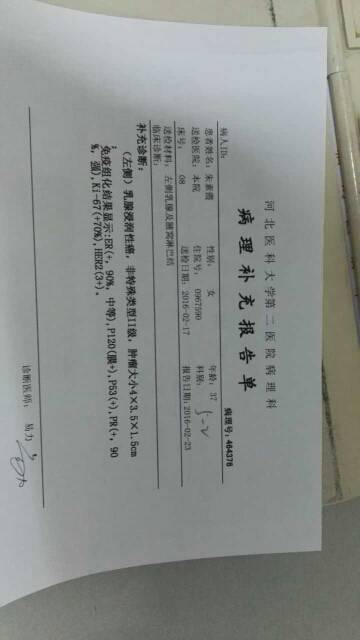 河北医科大学第二医院病理科
病理补充报告单
病理号: 464378
病人ID:
患者姓名: 朱素蕾 性别: 女 年龄: 37
送检医院: 本院 住院号: 0967590 科别:
床号: 08 送检日期: 2016-02-17 报告日期: 2016-02-23
送检材料: 左侧乳腺及腋窝淋巴结
临床诊断:
补充诊断:
(左侧)乳腺浸润性癌, 非特殊类型II级, 肿瘤大小4×3.5×1.5cm
;
免疫组化结果显示:ER(+, 90%, 中等), P120(膜+), P53(+), PR(+, 90
%, 强), Ki-67(+70%), HER2(3+)。
诊断医师: 易力